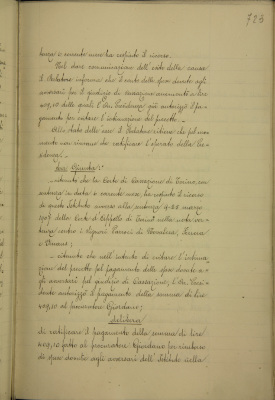 723
tenza 
Nel dare comunicazione dell'esito della causa
il Relatore informa che il conto delle spese dovute agli
avversari per il giudizio di cassazione ammonta a lire
409,10 delle quali l'On. Presidenza già autorizzò il pa-
gamento per evitare l'intimazione del precetto. -
Allo stato delle cose il Relatore ritiene che pel mo-
mento non rimane che ratificare l'operato della Pre-
sidenza. -
La Giunta:
- ritenuto che la Corte di Cassazione di Torino, con
sentenza in data 
di questo Istituto avverso alla sentenza 4-22 marzo
1907 della Corte di Appello di Torino nella nota ver-
tenza contro i Signori Parroci di 
e Vinovo;
- ritenuto che nell'intento di evitare l'intima-
zione del precetto pel pagamento delle spese dovute a-
gli avversari pel giudizio di Cassazione, l'On. Presi-
dente autorizzò il pagamento della somma di lire
409,10 al procuratore Giordano;
delibera
di ratificare il pagamento della somma di lire
409,10 fatto al procuratore Giordano per rimborso
di spese dovute agli avversari dell'Istituto nella